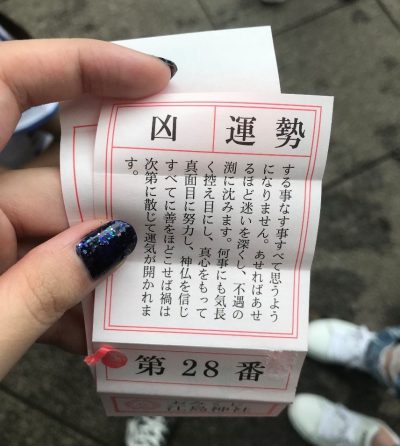 運勢
凶
する事なす事すべて思うよう
になりません。あせればあせ
るほど迷いを深くし、不遇の
渕に沈みます。何事にも気長
く控え目にし、真心をもって
真面目に努力し、神仏を信じ
すべてに善をほどこせば禍は
次第に散じて運気が開かれま
す。
第28番
江島神社